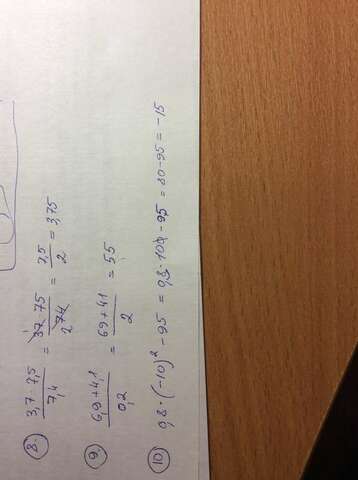 8. 3,7·7,5/7,4 = 37·75/2 74 = 7,5/2 = 3,75
9. 6,9+4,1/0,2 = 69+41/2 = 55
10 0,8·(-10)² - 95 = 0,8·100 - 95 = 80-95 = -15